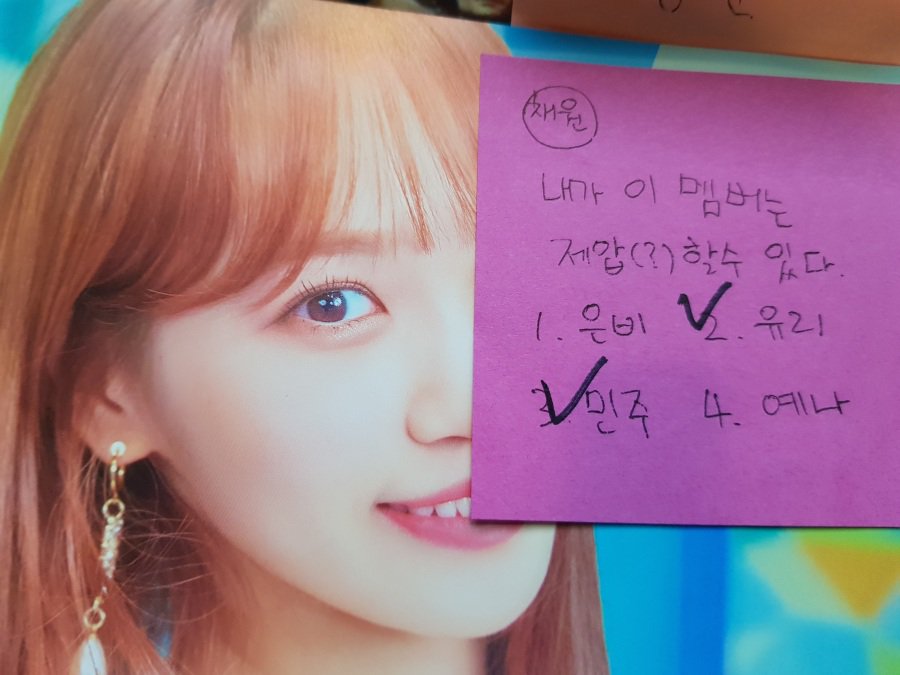 채원
내가 이 멤버는
제압(?)할수 있다.
1. 은비 2. 유리
3. 민주 4. 예나